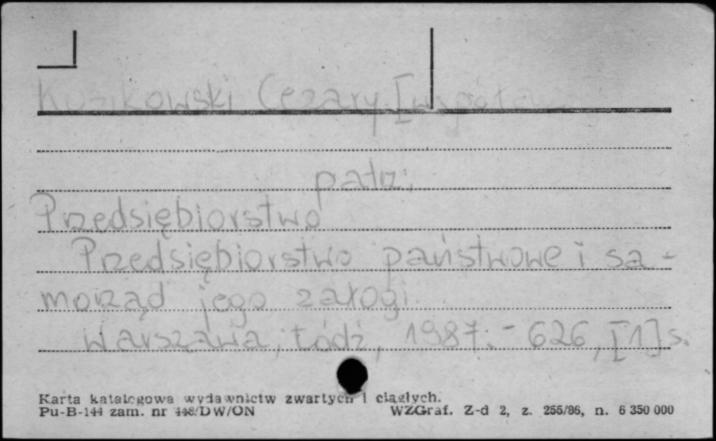 Kozikowski Cezary [współau
patrz:
Przedsiębiorstwo
Przedsiębiorstwo państwowe i sa-
morząd jego załogi
Warszawa; Łódź, 1987. - 626, [1] s.
Karta katalogowa wydawnictw zwartych i ciągłych.
Pu-B-144 zam. nr 448/DW/ON WZGraf. Z-d 2, z. 255/86, n. 6 350 000